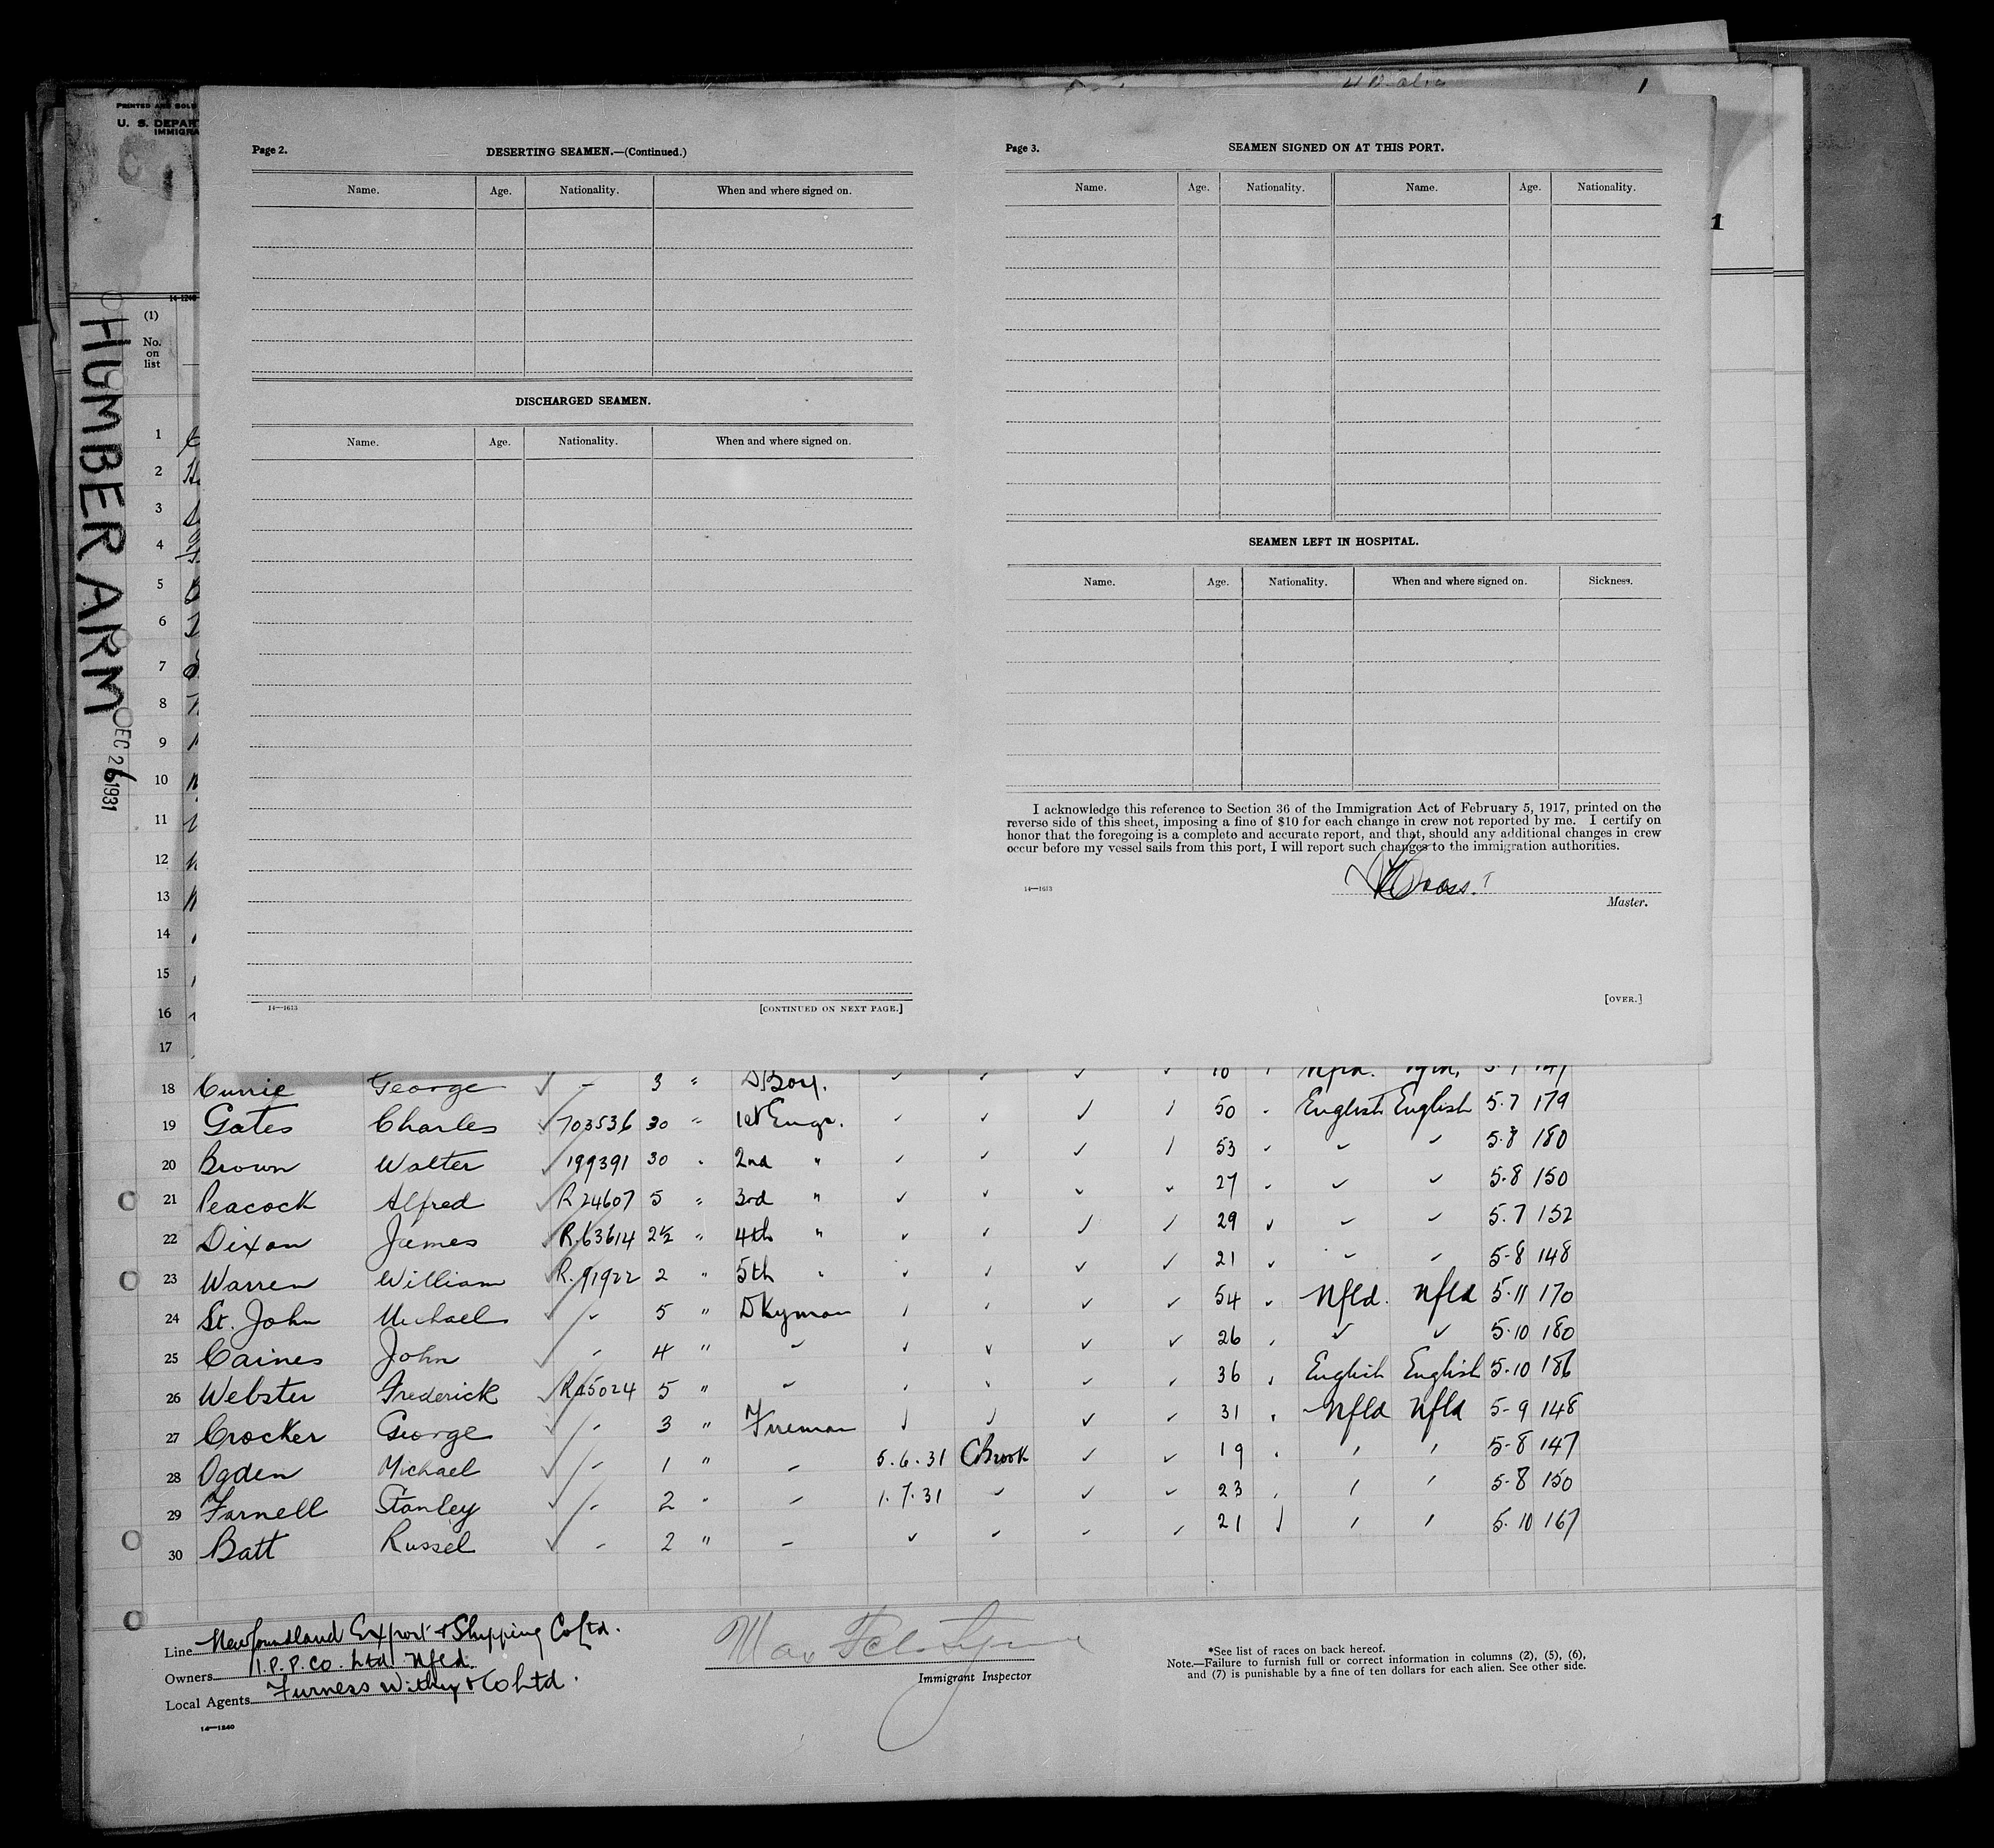 PRINTED AND SOLD
U. S. DEPAR
IMMIGRA
HUMBER ARM
DEC 26 1931
14-1240
(1)
No.
on
list
1
2
3
4
5
6
7
8
9
10
11
12
13
14
15
16
17
1
Page 2.
DESERTING SEAMEN.—(Continued.)
Name. Age. Nationality. When and where signed on.
DISCHARGED SEAMEN.
Name. Age. Nationality. When and where signed on.
14—1613 [CONTINUED ON NEXT PAGE.]
Page 3.
SEAMEN SIGNED ON AT THIS PORT.
Name. Age. Nationality. Name. Age. Nationality.
SEAMEN LEFT IN HOSPITAL.
Name. Age. Nationality. When and where signed on. Sickness.
I acknowledge this reference to Section 36 of the Immigration Act of February 5, 1917, printed on the
reverse side of this sheet, imposing a fine of $10 for each change in crew not reported by me. I certify on
honor that the foregoing is a complete and accurate report, and that, should any additional changes in crew
occur before my vessel sails from this port, I will report such changes to the immigration authorities.
14—1613
Master.
[OVER.]
18 Currie George - 3 " D Boy.
19 Gates Charles 703536 30 " 1st Engr. 50 English English 5.7 179
20 Brown Walter 199391 30 " 2nd " 53 5.8 180
21 Peacock Alfred R 24607 5 " 3rd " 27 5.8 150
22 Dixon James R.63614 2½ " 4th " 29 5.7 152
23 Warren William R.91922 2 " 5th " 21 5-8 148
24 St. John Michael - 5 " DKyman 54 Nfld. Nfld 5-11 170
25 Caines John - 4 " 26 5-10 180
26 Webster Frederick R45024 5 " 36 English English 5-10 186
27 Crocker George - 3 " Fireman 31 Nfld Nfld 5-9 148
28 Ogden Michael - 1 " - 5.6.31 CBrook 19 5-8 147
29 Farnell Stanley - 2 " - 1.7.31 23 5-8 150
30 Batt Russel - 2 " - 21 5.10 167
Line Newfoundland Export & Shipping Co Ltd.
Owners I.P.P.Co. Ltd Nfld.
Local Agents Furness Withy & Co Ltd.
14—1240
Immigrant Inspector
*See list of races on back hereof.
Note.—Failure to furnish full or correct information in columns (2), (5), (6),
and (7) is punishable by a fine of ten dollars for each alien. See other side.